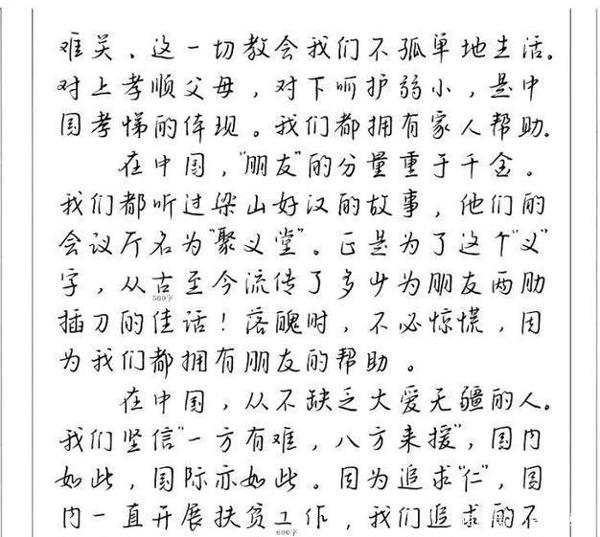 难关、这一切教会我们不孤单地生活。
对上孝顺父母，对下呵护弱小，是中
国孝悌的体现。我们都拥有家人帮助。
在中国，“朋友”的分量重于千金。
我们都听过梁山好汉的故事，他们的
会议厅名为“聚义堂”。正是为了这个“义”
字，从古至今流传了多少为朋友两肋
500字
插刀的佳话！落魄时，不必惊慌，因
为我们都拥有朋友的帮助。
在中国，从不缺乏大爱无疆的人。
我们坚信“一方有难，八方来援”，国内
如此，国际亦如此。因为追求“仁”，国
内一直开展扶贫工作，我们追求的不
600字